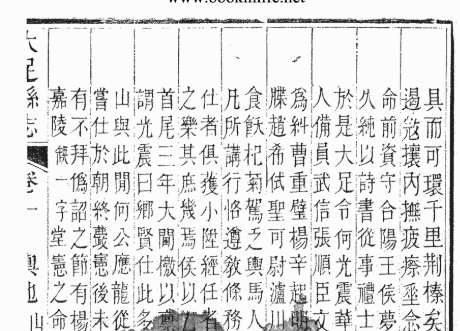 www.bookinlife.net
具而可環千里荆榛矣
遏勉攘內撫疲瘵丞念
命前資守合陽王侯夢
久純以詩書從事禮士
於是大足令何光震華
人備員武信張順臣文
爲糾曹重璧楊辛起明
牒趙希侙聖可尉瀘川
食飫杞菊駕之輿馬人
凡所講行恪遵敎條務
仕者俱獲小陞經任者
之樂其庶幾焉侯以
首尾三年大閫檄以
謂光震曰鄉賢仕此多
山與此閒何公應龍從
嘗仕於朝終憂憲後未
有不拜僞詔之節有楊
嘉陵餼一字堂憲之命
大足縣志 卷一 輿地 山